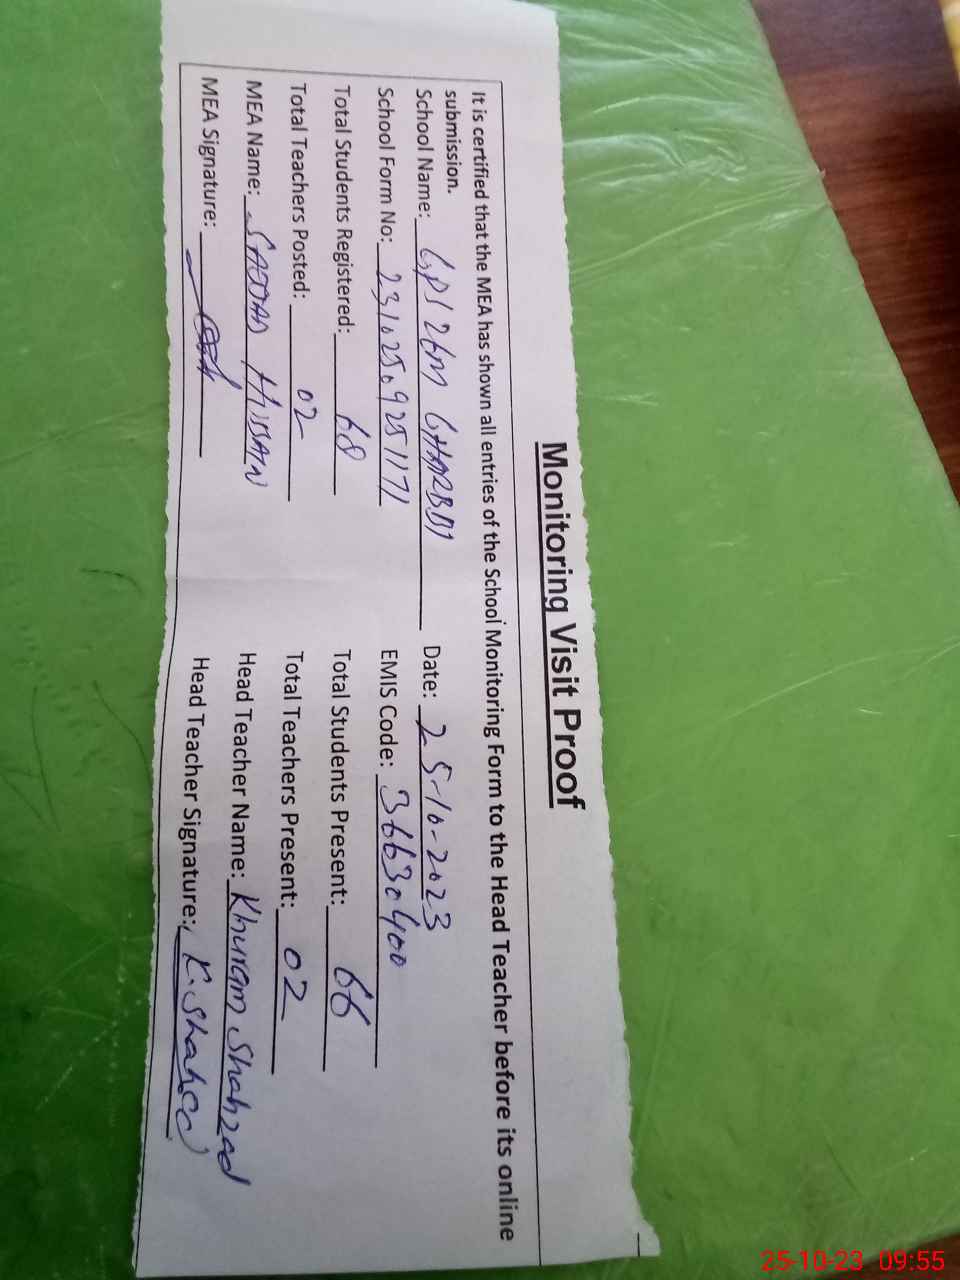 Monitoring Visit Proof
It is certified that the MEA has shown all entries of the School Monitoring Form to the Head Teacher before its online
submission.
School Name: GPS 26M GHARBI Date: 25-10-2023
School Form No: 231025092511171 EMIS Code: 36630400
Total Students Registered: 68 Total Students Present: 66
Total Teachers Posted: 02 Total Teachers Present: 02
MEA Name: HUSSAIN Head Teacher Name: Khuram Shahzad
MEA Signature: Head Teacher Signature: K.Shahzad
25-10-23 09:55